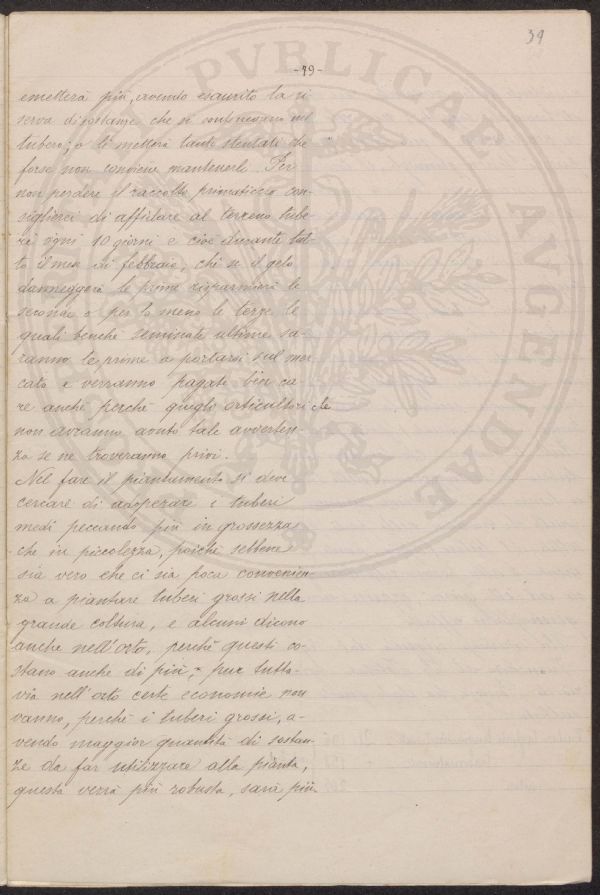 39
-19-
emetterà più, avendo esaurito la ri
serva di sostanze che si contenevano nel
tubero; o li metterà tanto stentati che
forse non conviene mantenerli. Per
non perdere il raccolto primaticcio con-
siglierei di affidare al terreno tube-
ri ogni 10 giorni e cioè durante tut-
to il mese di febbraio, chè se il gelo
danneggerà le prime risparmierà le
seconde o per lo meno le terze le
quali benchè seminate ultime sa-
ranno le prime a portarsi sul mer
cato e verranno pagate ben ca
re anche perchè quegli orticultori che
non avranno avuto tale avverten-
za se ne troveranno privi.
Nel fare il piantamento si deve
cercare di adoperare i tuberi
medi peccando più in grossezza
che in piccolezza, poichè sebbene
sia vero che ci sia poca convenien-
za a piantare tuberi grossi nella
grande coltura, e alcuni dicono
anche nell'orto, perchè questi co-
stano anche di più; pur tutta-
via nell'orto certe economie non
vanno, perchè i tuberi grossi, a-
vendo maggior quantità di sostan-
ze da far utilizzare alla pianta,
questa verrà più robusta, sarà più
PVBLICAE AVGENDAE